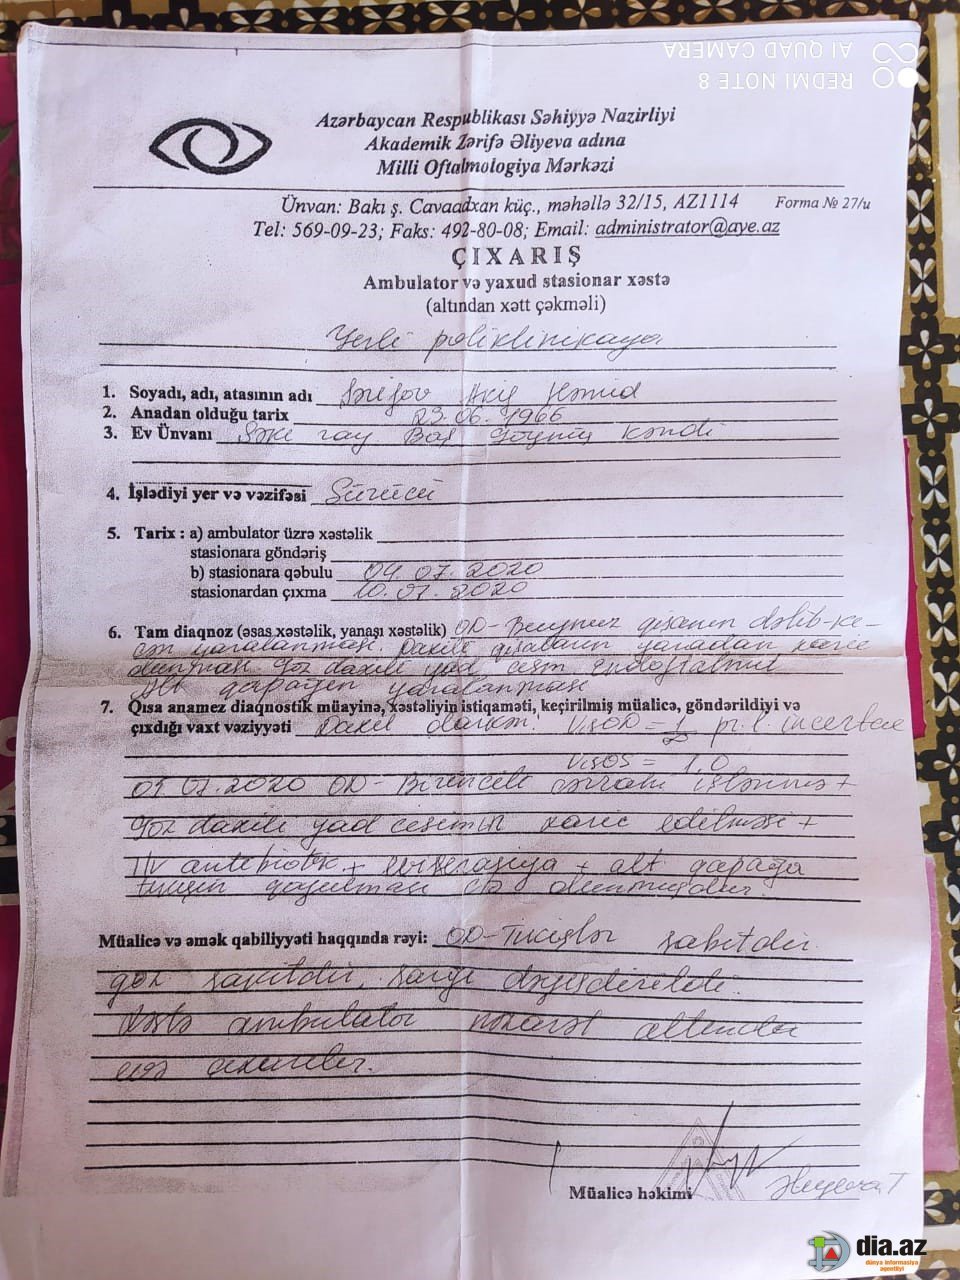 REDMI NOTE 8
AI QUAD CAMERA
Azərbaycan Respublikası Səhiyyə Nazirliyi
Akademik Zərifə Əliyeva adına
Milli Oftalmologiya Mərkəzi
Ünvan: Bakı ş. Cavadxan küç., məhəllə 32/15, AZ1114 Forma № 27/u
Tel: 569-09-23; Faks: 492-80-08; Email: administrator@aye.az
ÇIXARIŞ
Ambulator və yaxud stasionar xəstə
(altından xətt çəkməli)
Yerli poliklinikaya
1. Soyadı, adı, atasının adı
2. Anadan olduğu tarix 23.06.1966
3. Ev Ünvanı Şəki ray Baş Göynük kəndi
4. İşlədiyi yer və vəzifəsi Sürücü
5. Tarix : a) ambulator üzrə xəstəlik
stasionara göndəriş
b) stasionara qəbulu 04.07.2020
stasionardan çıxma 10.07.2020
6. Tam diaqnoz (əsas xəstəlik, yanaşı xəstəlik) OD- Buynuz qişanın dəlib-ke-
çən yaralanması. Daxili qişaların yaradan xaric
olunması. Göz daxili yad cisim
Alt qapağın yaralanması
7. Qısa anamez diaqnostik müayinə, xəstəliyin istiqaməti, keçirilmiş müalicə, göndərildiyi və
çıxdığı vaxt vəziyyəti Daxil olarkən: VisOD = 1/∞ pr.l. incertae
VisOS = 1,0
07.2020 OD- Birincili cərrahi işlənmə +
göz daxili yad cismin xaric edilməsi +
antibiotik + + alt qapağa
tikişin qoyulması olunmuşdur.
Müalicə və əmək qabiliyyəti haqqında rəyi: OD-Tikişlər sabitdir.
göz sakitdir, sarğı dəyişdirildi.
Xəstə ambulator nəzarət altında
evə çıxarılır.
Müalicə həkimi
dia.az
dünya informasiya
agentliyi